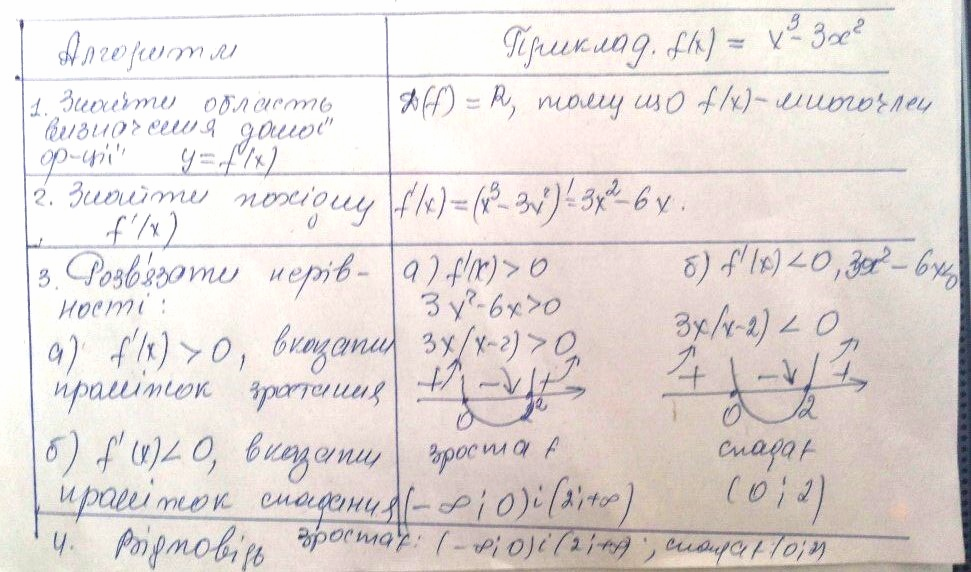 Алгоритм
Приклад. f(x) = x³ - 3x²
1. Знайти область
визначення даної
ф-ції y = f(x)
D(f) = R, тому що f(x) - многочлен
2. Знайти похідну
f'(x)
f'(x) = (x³ - 3x²)' = 3x² - 6x.
3. Розв'язати нерів-
ності:
а) f'(x) > 0, вказати
проміжок зростання
б) f'(x) < 0, вказати
проміжок спадання
а) f'(x) > 0
3x² - 6x > 0
3x(x-2) > 0
+ - +
0 2
зростає
(-∞; 0) і (2; +∞)
б) f'(x) < 0, 3x² - 6x < 0
3x(x-2) < 0
+ - +
0 2
спадає
(0; 2)
4. Відповідь зростає: (-∞; 0) і (2; +∞), спадає (0; 2)